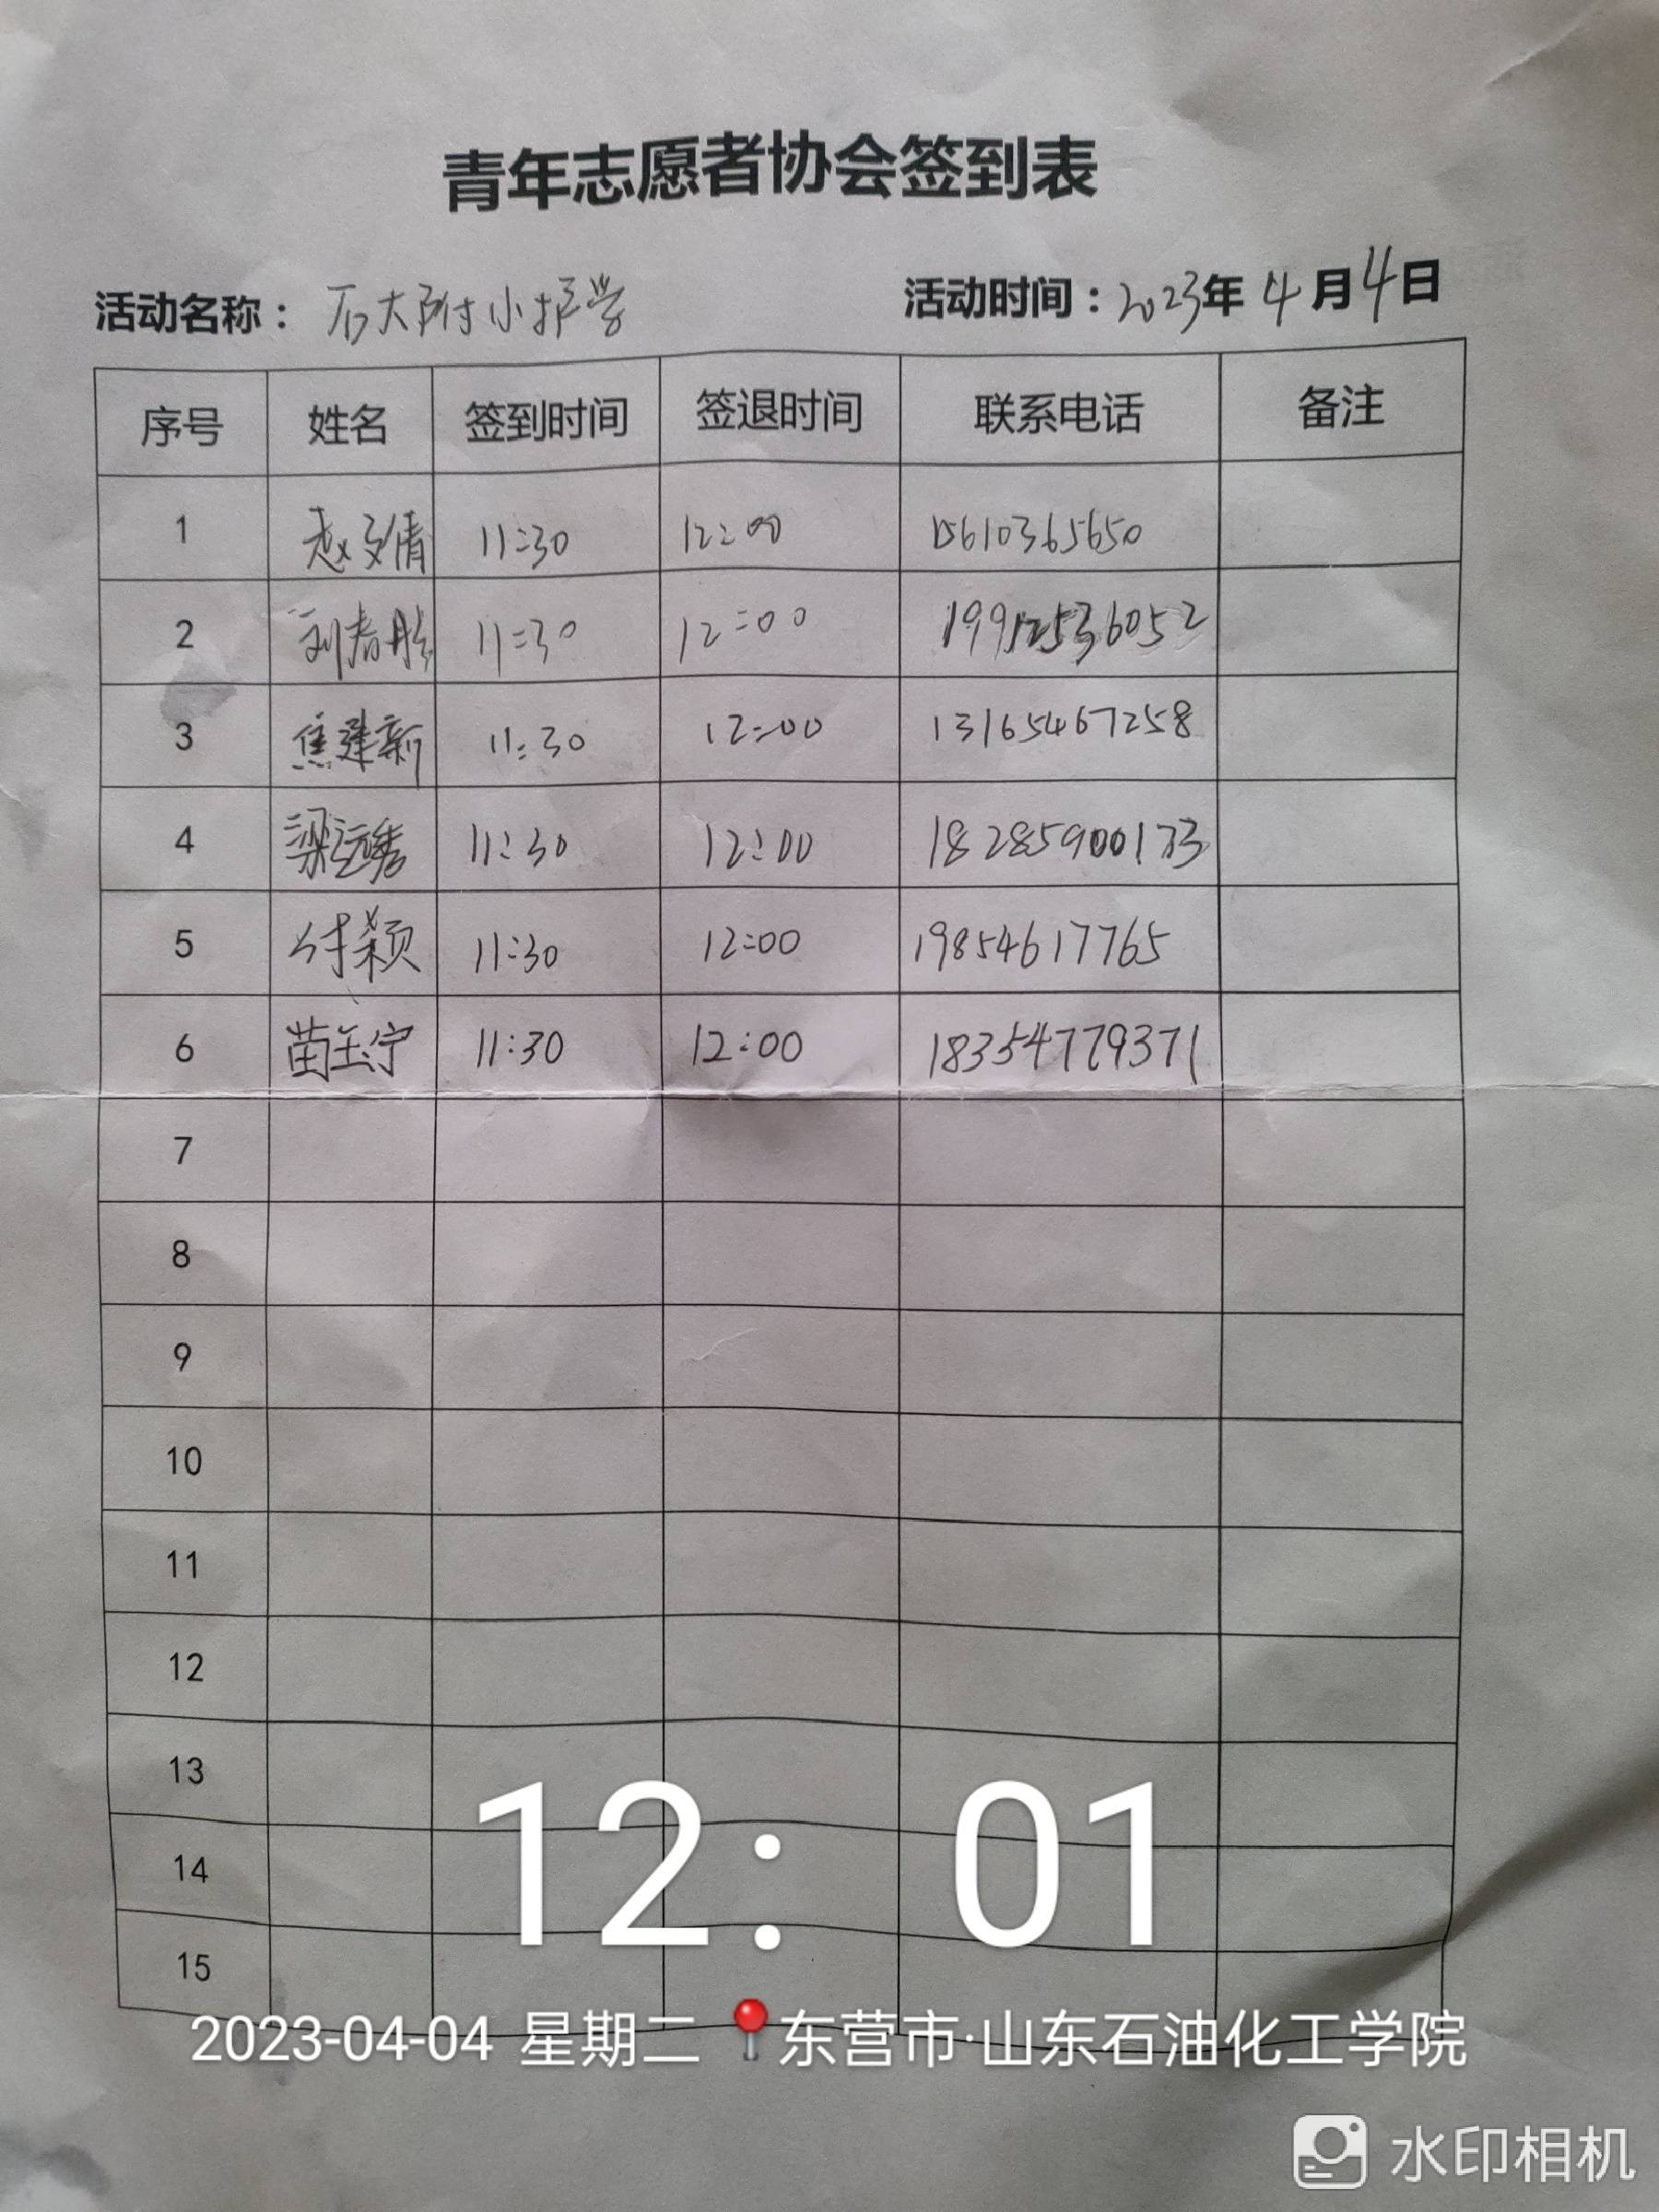 青年志愿者协会签到表
活动名称： 石大附小护学 活动时间：2023年4月4日
序号 姓名 签到时间 签退时间 联系电话 备注
1 赵文倩 11:30 12:00 15610365650
2 刘春彤 11:30 12:00 19912536052
3 焦建新 11:30 12:00 13165467258
4 梁远秀 11:30 12:00 18285900173
5 付颖 11:30 12:00 19854617765
6 苗玉宁 11:30 12:00 18354779371
7
8
9
10
11
12
13
14
15
12: 01
2023-04-04 星期二 东营市·山东石油化工学院
水印相机